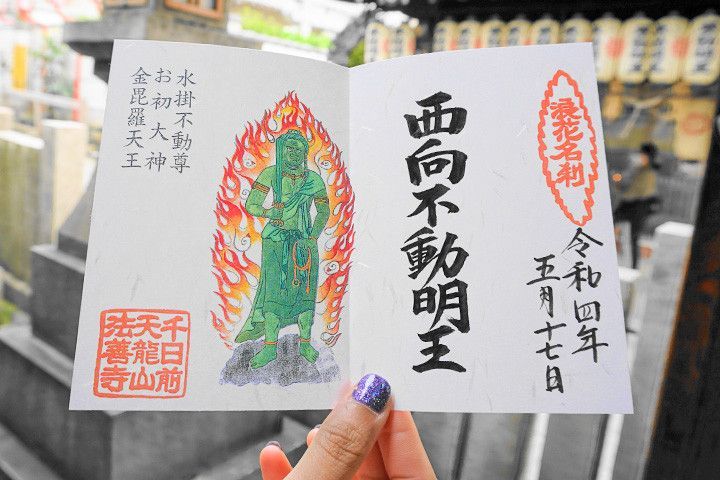 浪花名刹
西向不動明王
令和四年
五月十七日
水掛不動尊
お初大神
金毘羅天王
千日前
天龍山
法善寺